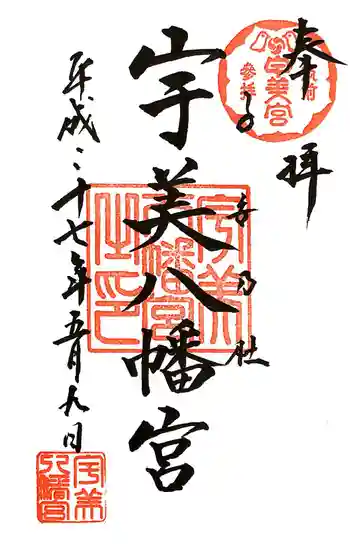 奉拝
宇美八幡宮
平成二十七年五月九日
宇美宮
参拝
宇美八幡宮之印
宇美八幡宮